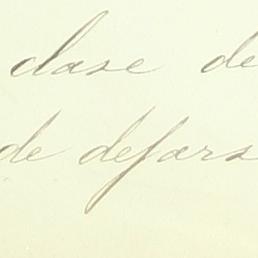 clase de
de defars